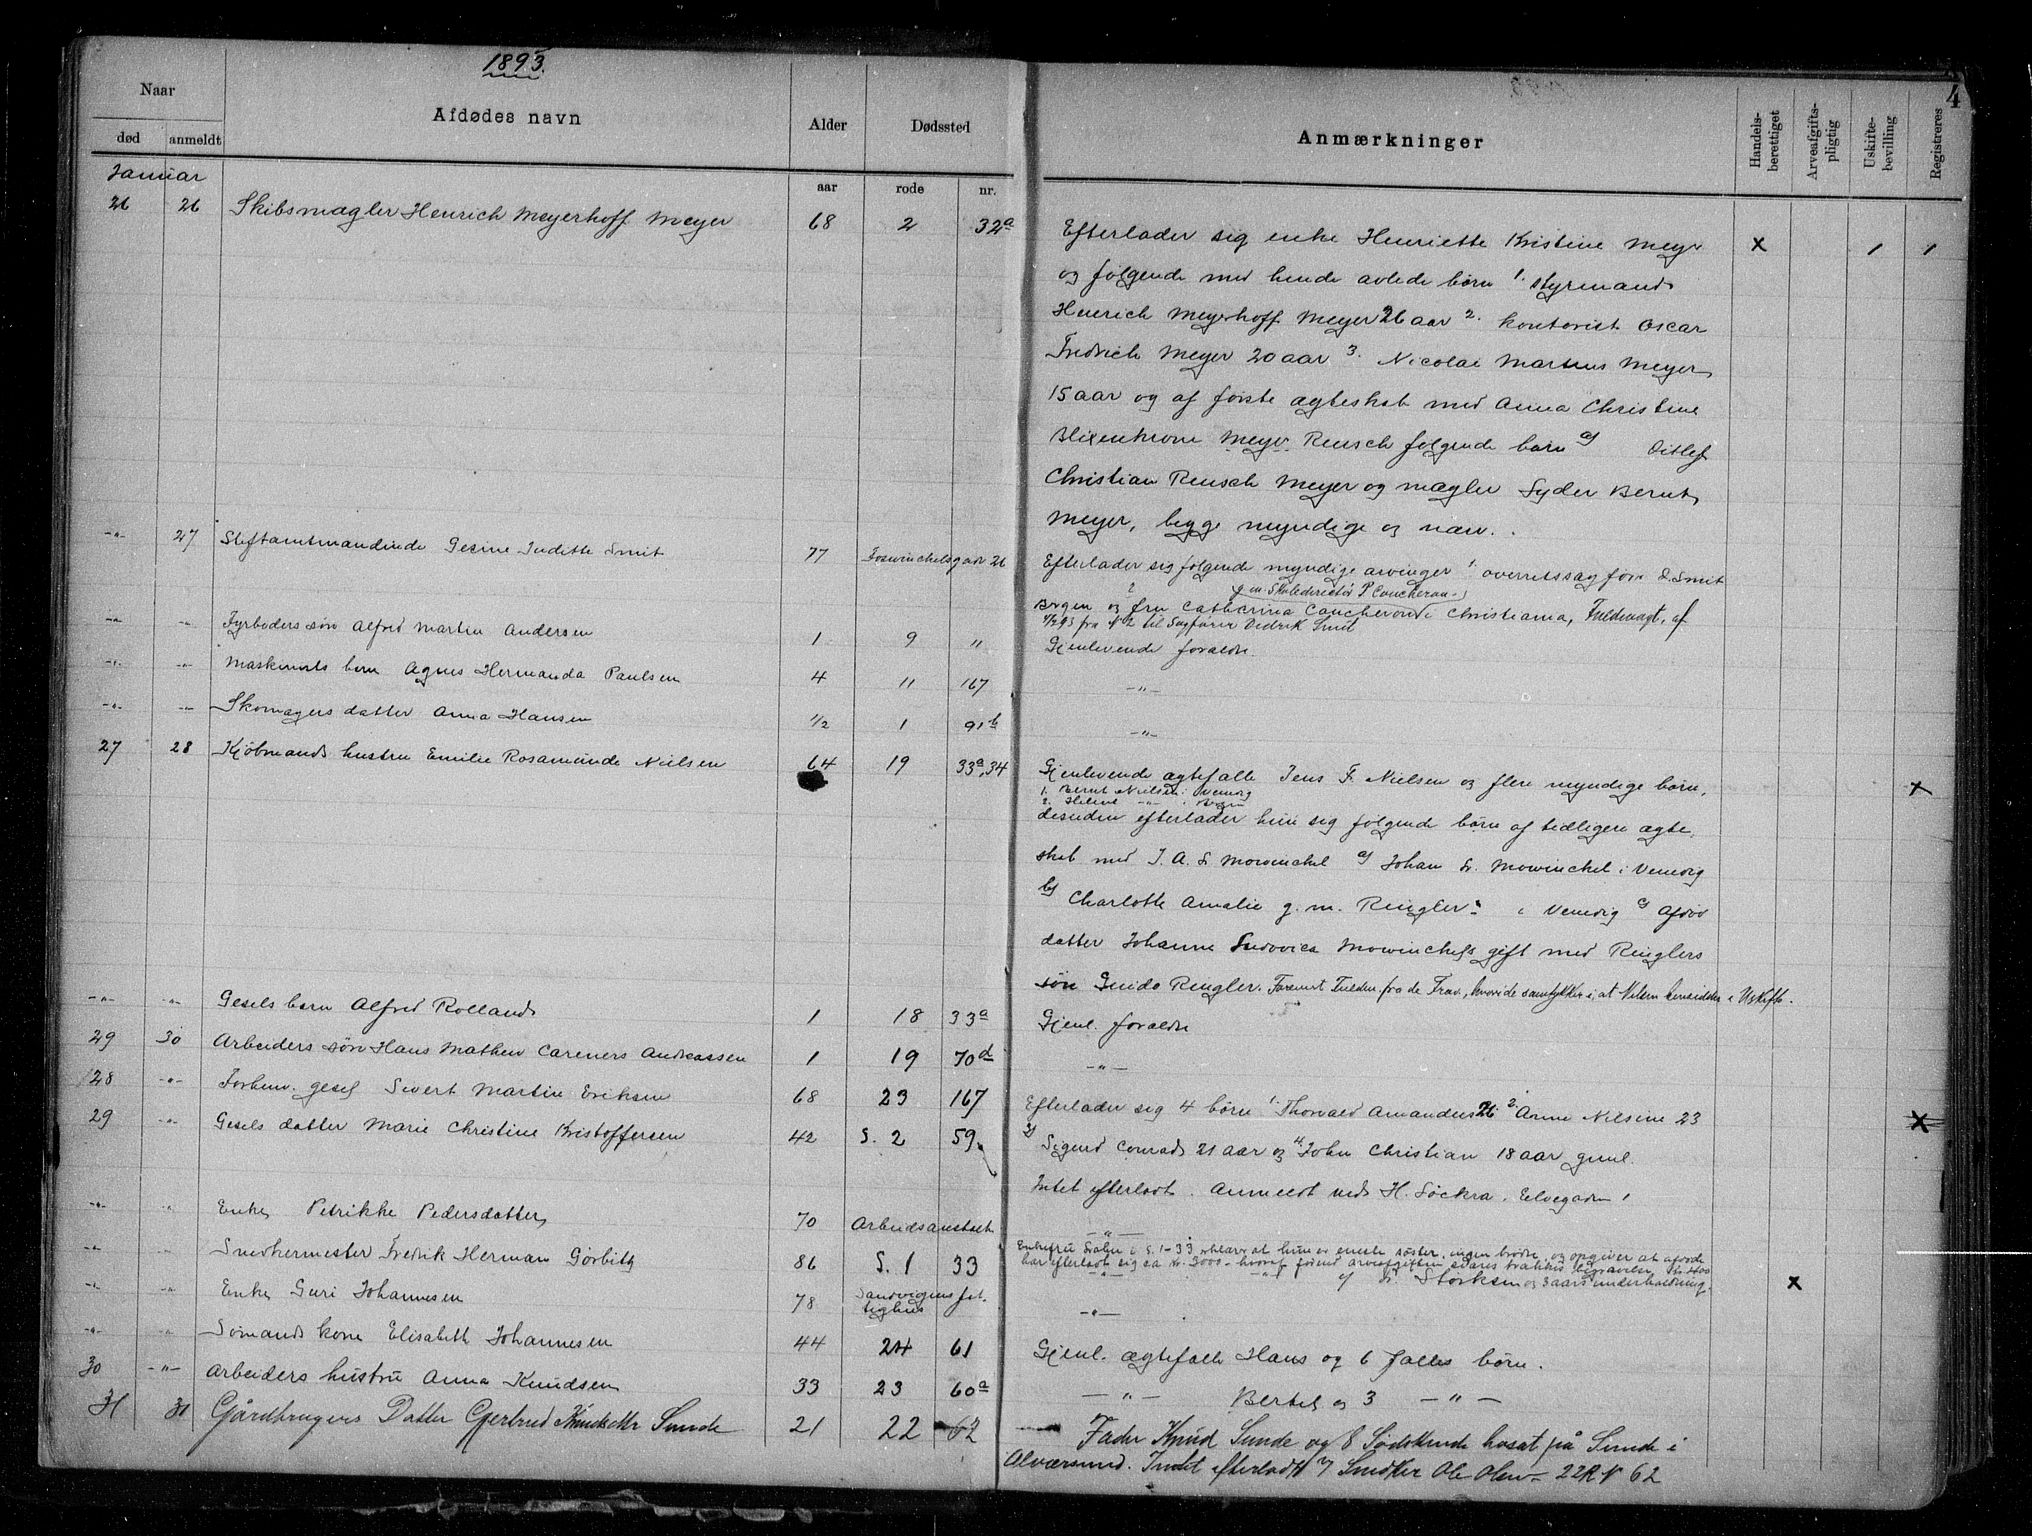 1893.
4
Naar
død
anmeldt
Afdødes navn
Alder
aar
Dødssted
rode
nr.
Anmærkninger
Handels-
berettiget
Arveafgifts-
pligtig
Uskifte-
bevilling
Registreres
Januar
26 26 Skibsmægler Henrich Meyerhoff Meyer 68 2 32a
Efterlader sig enke Henriette Kristine Meyer x 1 1
og følgende med hende avlede børn 1. styrmand
Henrich Meyerhoff Meyer 26 aar 2. kontorist Oscar
Fredrich Meyer 20 aar 3. Nicolai Martens Meyer
15 aar og af første ægteskab med Anna Christine
Blixenkrone Meyer Reusch følgende børn a) Ditlef
Christian Reusch Meyer og mægler Syder Bernt
Meyer, begge myndige og nærv.
-"- 27 Stiftamtmandinde Gesine Judithe Smit 77 Foswinckelsgade 26
Efterlader sig følgende myndige arvinger 1. overretssagfører D. Smit
2 g.m. Skoledirectør P Caucheron
Bergen og fru Catherina Caucheron i Christiania, Fuldmagt, af
fra No 2 til Sagfører Didrik Smit
-"- -"- Fyrbøders søn Alfred Martin Andersen 1 9 "
Gjenlevende forældre.
-"- -"- Maskinists barn Agnes Hermanda Paulsen 4 11 167
-"-
-"- -"- Skomagers datter Anna Hansen 1/2 1 91b
-"-
27 28 Kjøbmands hustru Emilie Rosamunde Nielsen 64 19 33a, 34
Gjenlevende ægtefælle Jens F. Nielsen og flere myndige børn, x
1. Bernt Nielsen i Venedig
2. Helene -"- i Bergen
desuden efterlader hun sig følgende børn af tidligere ægte-
skab med J. A. S. Mowinckel a) Johan S. Mowinckel i Venedig
b) Charlotte Amalie g. m. Ringler i Venedig c) Afdød
datter Johanne Ludovica Mowinckels gift med Ringlers
søn Guido Ringler. fra de Frav., hvori de samtykker i, at Nielsen hensidder i Uskifte.
-"- " Gesels barn Alfred Rolland 1 18 33a
Gjenl. forældre
29 30 Arbeiders søn Hans Mathew Careners Andreassen 1 19 70d
-"-
28 -"- Forhenv. gesel Sivert Martin Eriksen 68 23 167
Efterlader sig 4 børn 1. Thorvald Amandus 26 2. Anne Nilsine 23 x
3) Sigurd Conrad 21 aar og 4. John Christian 18 aar gjenl.
29 " Gesels datter Marie Christine Kristoffersen 42 S. 2 59
Intet efterladt. Anmeldt ved H. Søckra, Elvegaden 1
" " Enke Petrikke Pedersdatter 70 Arbeidsanstalt
-"-
" " Snedkermester Fredrik Herman Görbitz 86 S. 1 33
Enkefru Svahn i S. 1-33 erklærer at hun er eneste søster, ingen brødre, og opgiver at afdøde
har efterladt sig ca kr. 3000 - hvoraf forend arveafgiften svares trækkes begravelse, kr. 400
af Storksen og 3 aars underholdning. x
" " Enke Guri Johannesen 78 Sandvigens fat-
tighus
-"-
" " Sømands kone Elisabeth Johannesen 44 24 61
Gjenl. ægtefælle Hans og 6 fælles børn.
30 -"- Arbeiders hustru Anna Knudsen 33 23 60a
-"- Bertel og 3 -"-
31 31 Gårdbrugers Datter Gjertrud Knudsdtr Sunde 21 22 62
Fader Knud Sunde og 8 Sødskende bosat på Sunde i
Alværsund. Intet efterladt Snedker Ole Olsen 22 R No 62